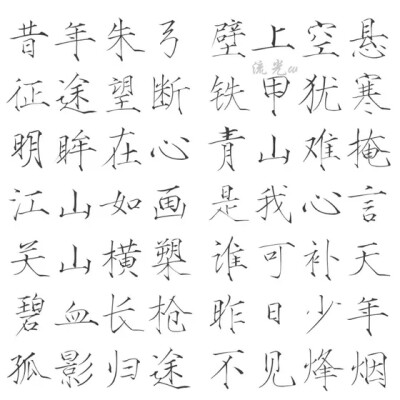 昔年朱弓 壁上空悬
流光ω
征途望断 铁甲犹寒
明眸在心 青山难掩
江山如画 是我心言
关山横槊 谁可补天
碧血长枪 昨日少年
孤影归途 不见烽烟